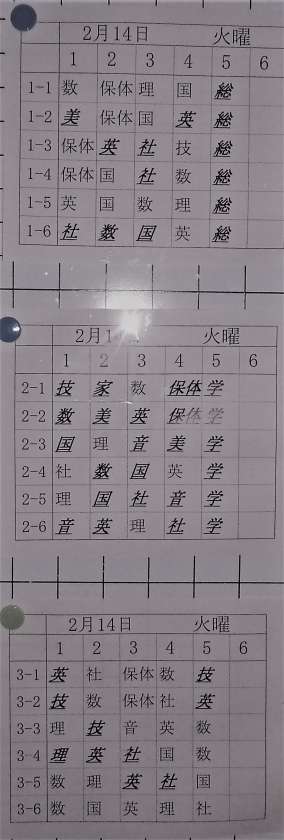 2月14日 火曜
1 2 3 4 5 6
1-1 数 保体 理 国 総
1-2 美 保体 国 英 総
1-3 保体 英 社 技 総
1-4 保体 国 社 数 総
1-5 英 国 数 理 総
1-6 社 数 国 英 総
2月1 火曜
1 2 3 4 5 6
2-1 技 家 数 保体 学
2-2 数 美 英 保体 学
2-3 国 理 音 美 学
2-4 社 数 国 英 学
2-5 理 国 社 音 学
2-6 音 英 理 社 学
2月14日 火曜
1 2 3 4 5 6
3-1 英 社 保体 数 技
3-2 技 数 保体 社 英
3-3 理 技 音 英 数
3-4 理 英 社 国 数
3-5 数 理 英 社 国
3-6 数 国 英 理 社